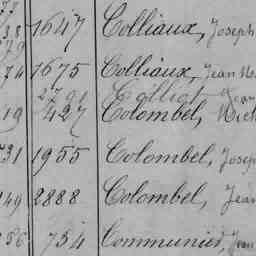 38 1647 Colliaux, Joseph
74 1675 Colliaux, Jean
2791 Colliot Jean
19 427 Colombel,
731 1955 Colombel, Joseph
149 2888 Colombel, Jean
256 754 Communier, Jean